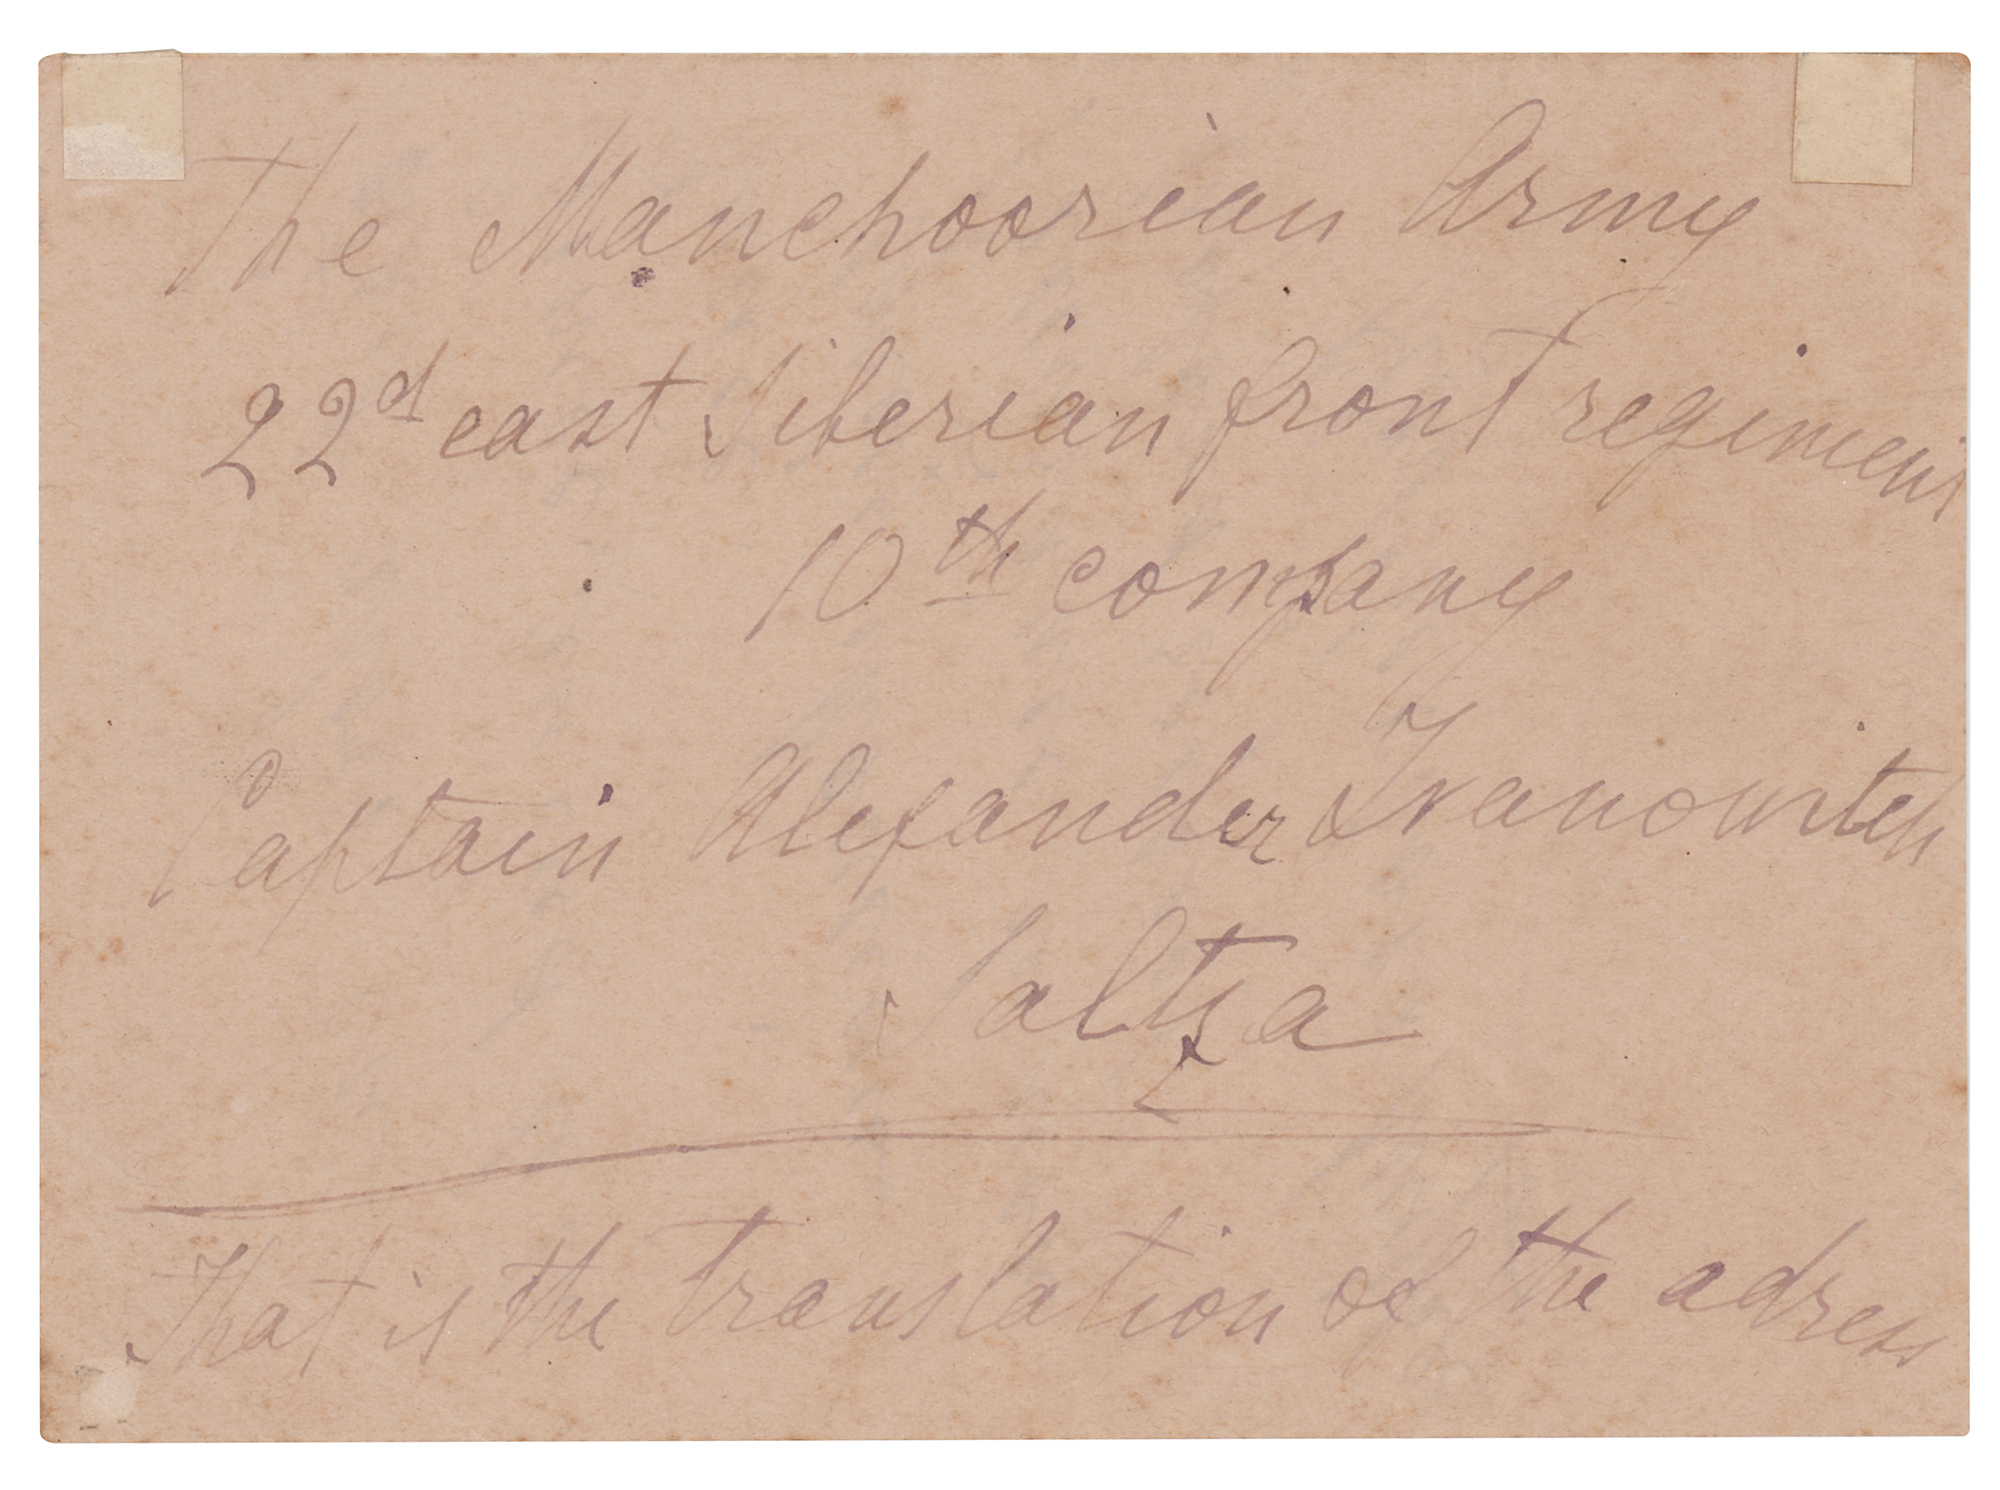 The Manchoorian Army
22d east Siberian front regiment
10th company
Captain Alexander Ivanowitch
Saltza
That is the translation of the adress